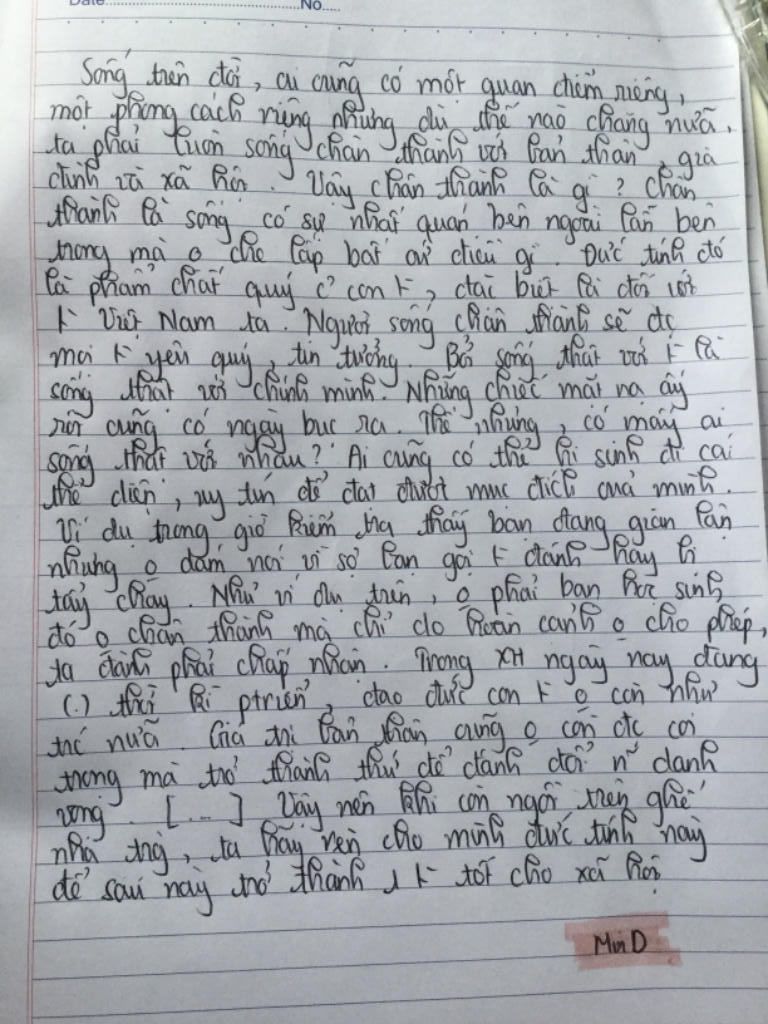 Date.......... No.....
Sống trên đời, ai cũng có một quan điểm riêng,
một phong cách riêng nhưng dù thế nào chăng nữa,
ta phải luôn sống chân thành với bản thân, gia
đình và xã hội. Vậy chân thành là gì? Chân
thành là sống có sự nhất quán bên ngoài lẫn bên
trong mà o che lấp bất cứ điều gì. Đức tính đó
là phẩm chất quý c̉ con t, đặc biệt là đối với
t Việt Nam ta. Người sống chân thành sẽ đc
mọi t yêu quý, tin tưởng. Bởi sống thật với t là
sống thật với chính mình. Những chiếc mặt nạ ấy
rồi cũng có ngày bục ra. Thế nhưng, có mấy ai
sống thật với nhau? Ai cũng có thể hi sinh đi cái
thể diện, uy tín để đạt được mục đích của mình.
Ví dụ trong giờ kiểm tra thấy bạn đang gian lận
nhưng o dám nói vì sợ bạn gọi t đánh hay bị
tẩy chay. Như ví dụ trên, o phải bạn học sinh
đó o chân thành mà chỉ do hoàn cảnh o cho phép,
ta đành phải chấp nhận. Trong XH ngày nay đang
(.) thời kì ptriển, đạo đức con t o còn như
trc nữa. Giá trị bản thân cũng o còn đc coi
trọng mà trở thành thứ để đánh đổi n~ danh
vọng. [...] Vậy nên khi còn ngồi trên ghế
nhà trg, ta hãy rèn cho mình đức tính này
để sau này trở thành 1 t tốt cho xã hội